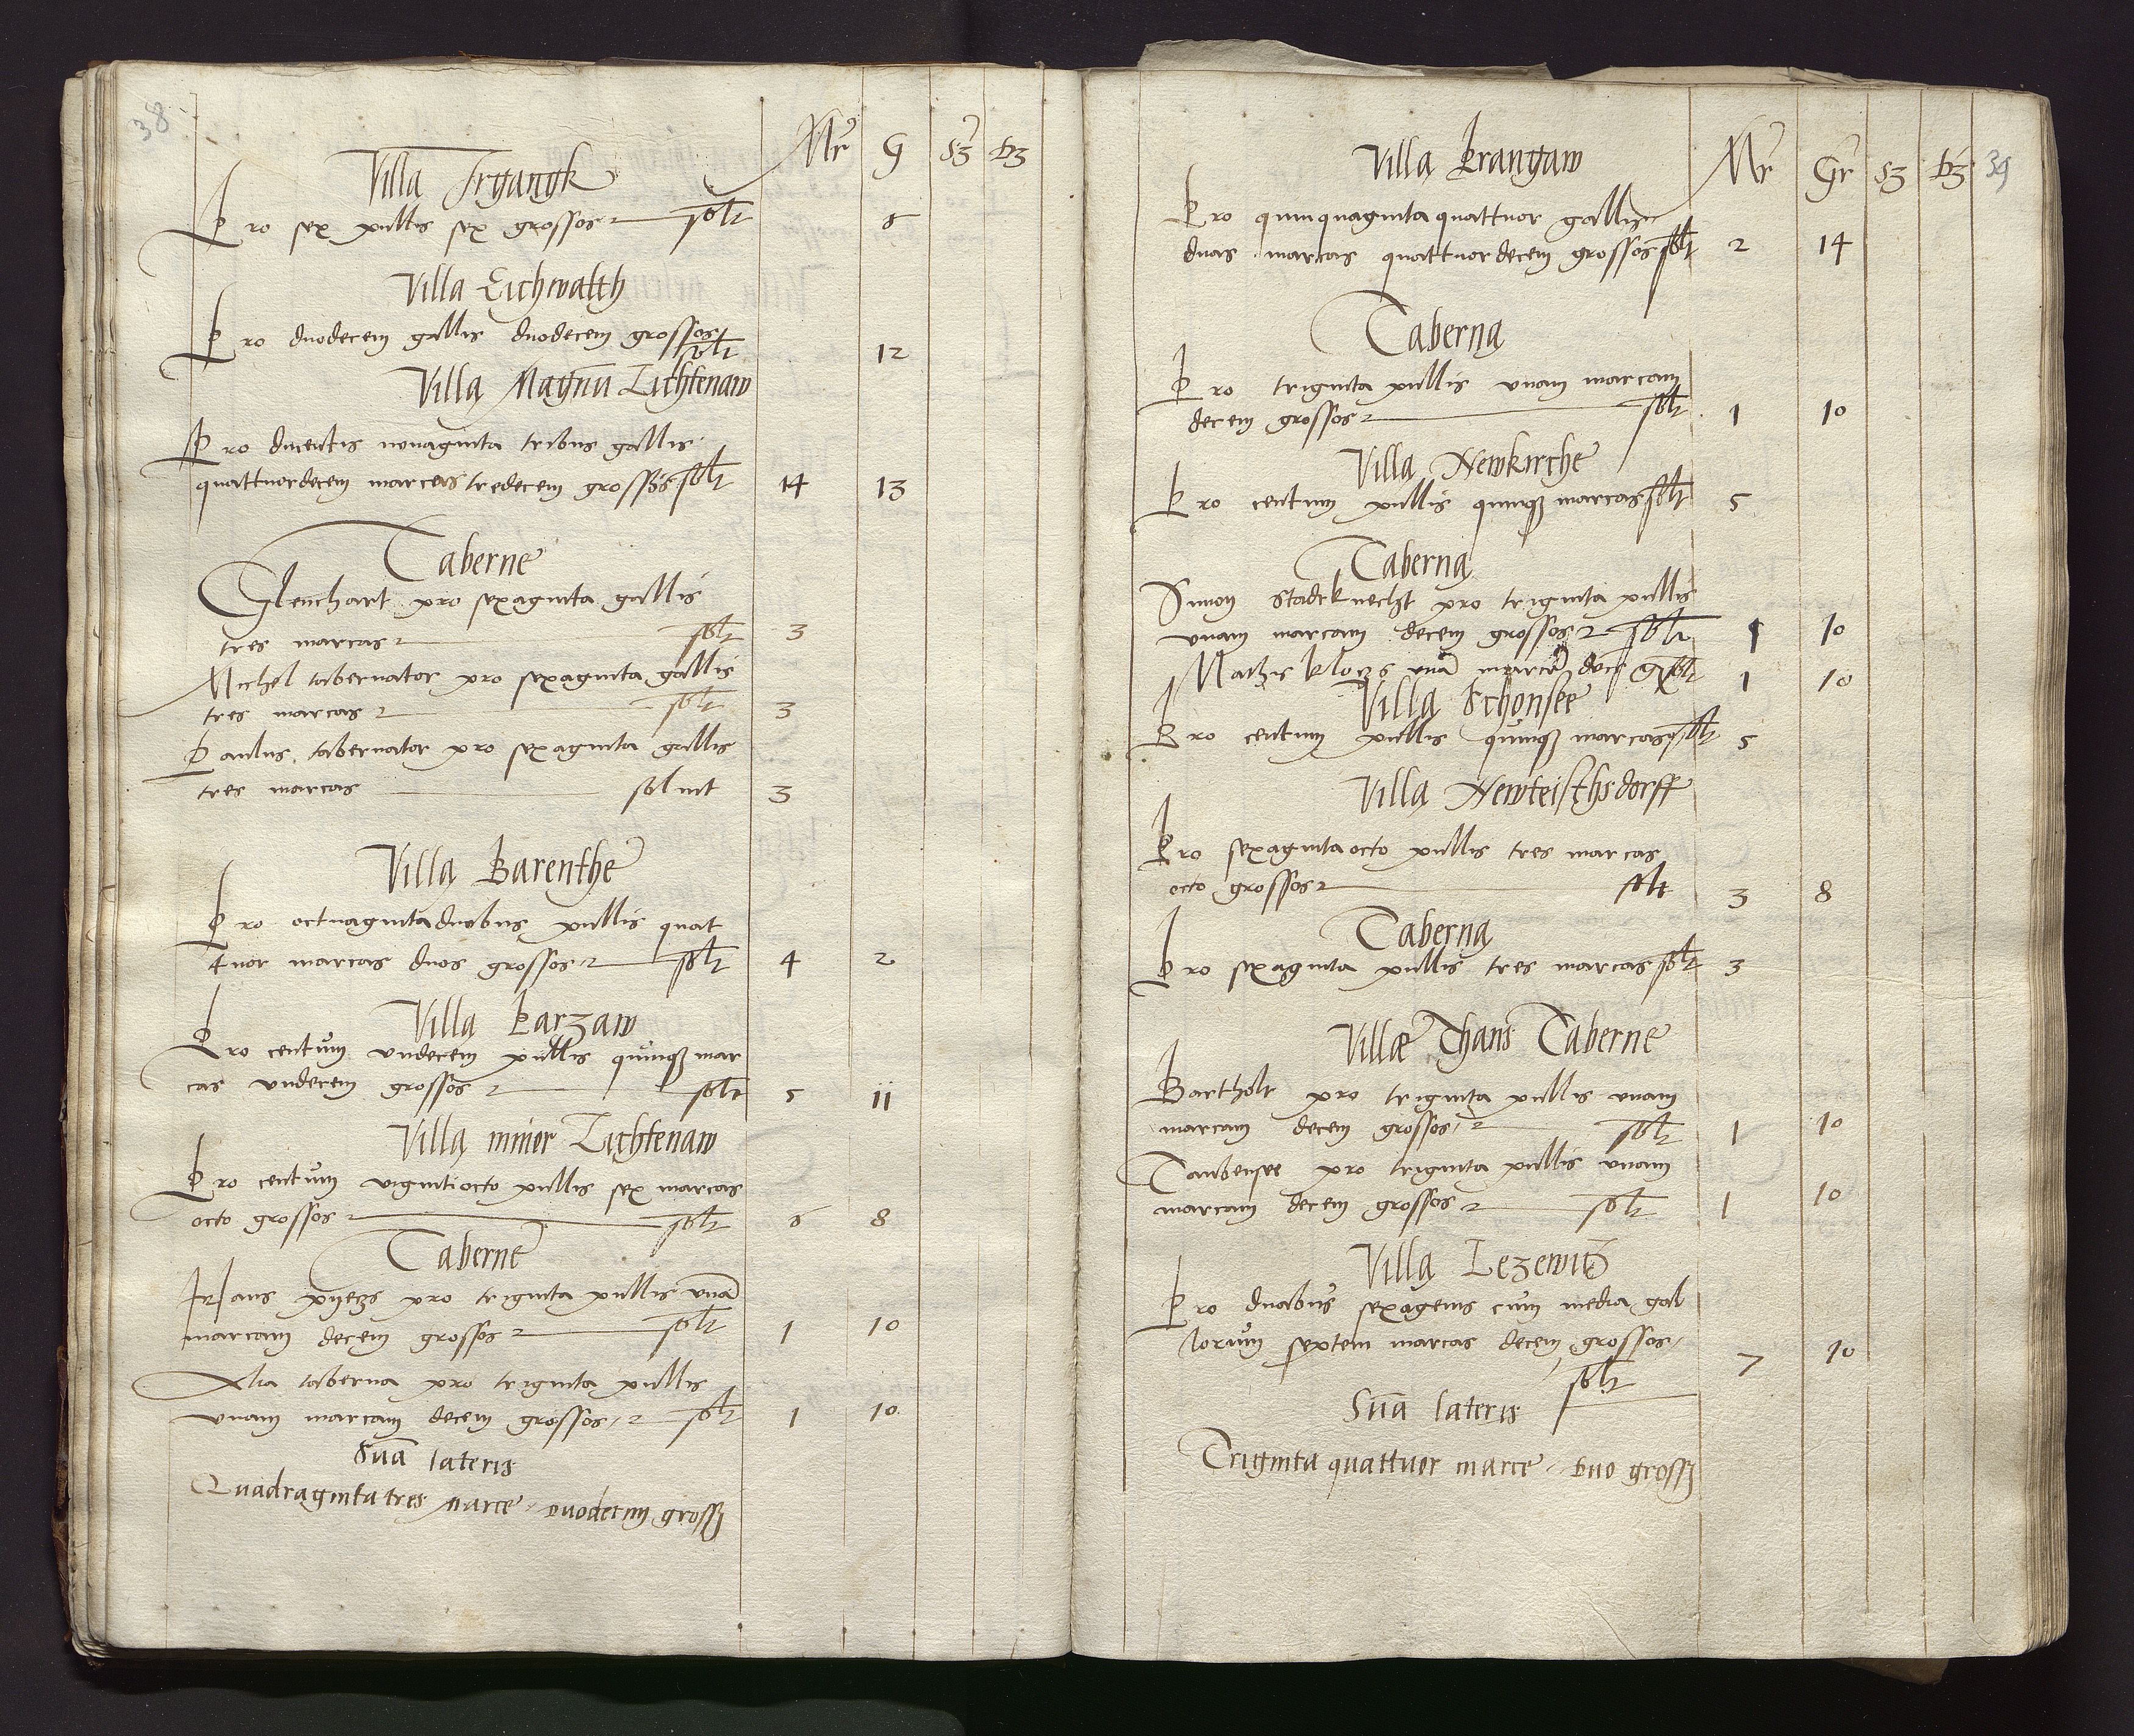 38
Mr G S3 d3
Villa Irgangk
Pro sex pullis sex grossos solt 6
Villa Eichwalth
Pro duodecem gallis duodecem grossos
solt 12
Villa Magnū Lichtenaw
Pro ducentis nonaginta tribus gallis
quattuordecem marcas tredecem grossos solt 14 13
Taberne
Glenchart pro sexaginta gallis
tres marcas solt 3
Michel tabernator pro sexaginta gallis
tres marcas solt 3
Paulus tabernator pro sexaginta gallis
tres marcas soluit 3
Villa Barenthe
Pro octuaginta duobus pullis quat
tuor marcas duos grossos solt 4 2
Villa Parzaw
Pro centum vndecem pullis quinqz mar
cas vndecem grossos solt 5 11
Villa minor Lichtenaw
Pro centum vigintiocto pullis sex marcas
octo grossos solt 6 8
Taberne
Hans pyetzs pro triginta pullis vnā
marcam decem grossos solt 1 10
Alia taberna pro triginta pullis
vnam marcam decem grossos solt 1 10
Suā lateris
Quadraginta tres marce duodecim grossj
39
Mr Gr S3 d3
Villa Krangaw
Pro quinquaginta quattuor gallis
duas marcas quattuordecem grossos solt 2 14
Taberna
Pro triginta pullis vnam marcam
decem grossos solt 1 10
Villa Newkirche
Pro centum pullis quinqz marcas solt 5
Taberna
Simon Stadtknecht pro triginta pullis
vnam marcam decem grossos solt 1 10
Matzis Klotzs vnā marcā decē gr solt 1 10
Villa Schonsee
Pro centum pullis quinqz marcas solt 5
Villa Newteisthsdorff
Pro sexaginta octo pullis tres marcas
octo grossos solt 3 8
Taberna
Pro sexaginta pullis tres marcas solt 3
Villæ Thans Taberne
Bartholt pro triginta pullis vnam
marcam decem grossos solt 1 10
Taubensee pro triginta pullis vnam
marcam decem grossos solt 1 10
Villa Lezewitz
Pro duabus sexagenis cum media gal
lorum septem marcas decem grossos 7 10
solt
Suā lateris
Triginta quattuor marce duo grossj